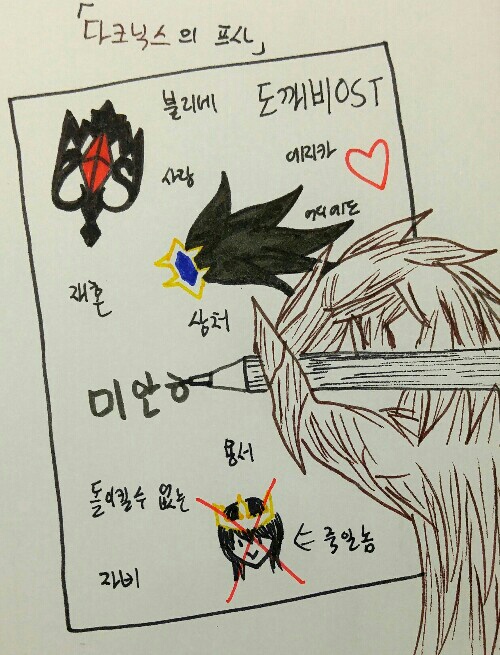 「다크닉스의 프사」
블리베
도깨비OST
에리카
사랑
어디에도
재혼
상처
미안ㅎ
용서
돌이킬수 없는
⇐ 죽일놈
자비